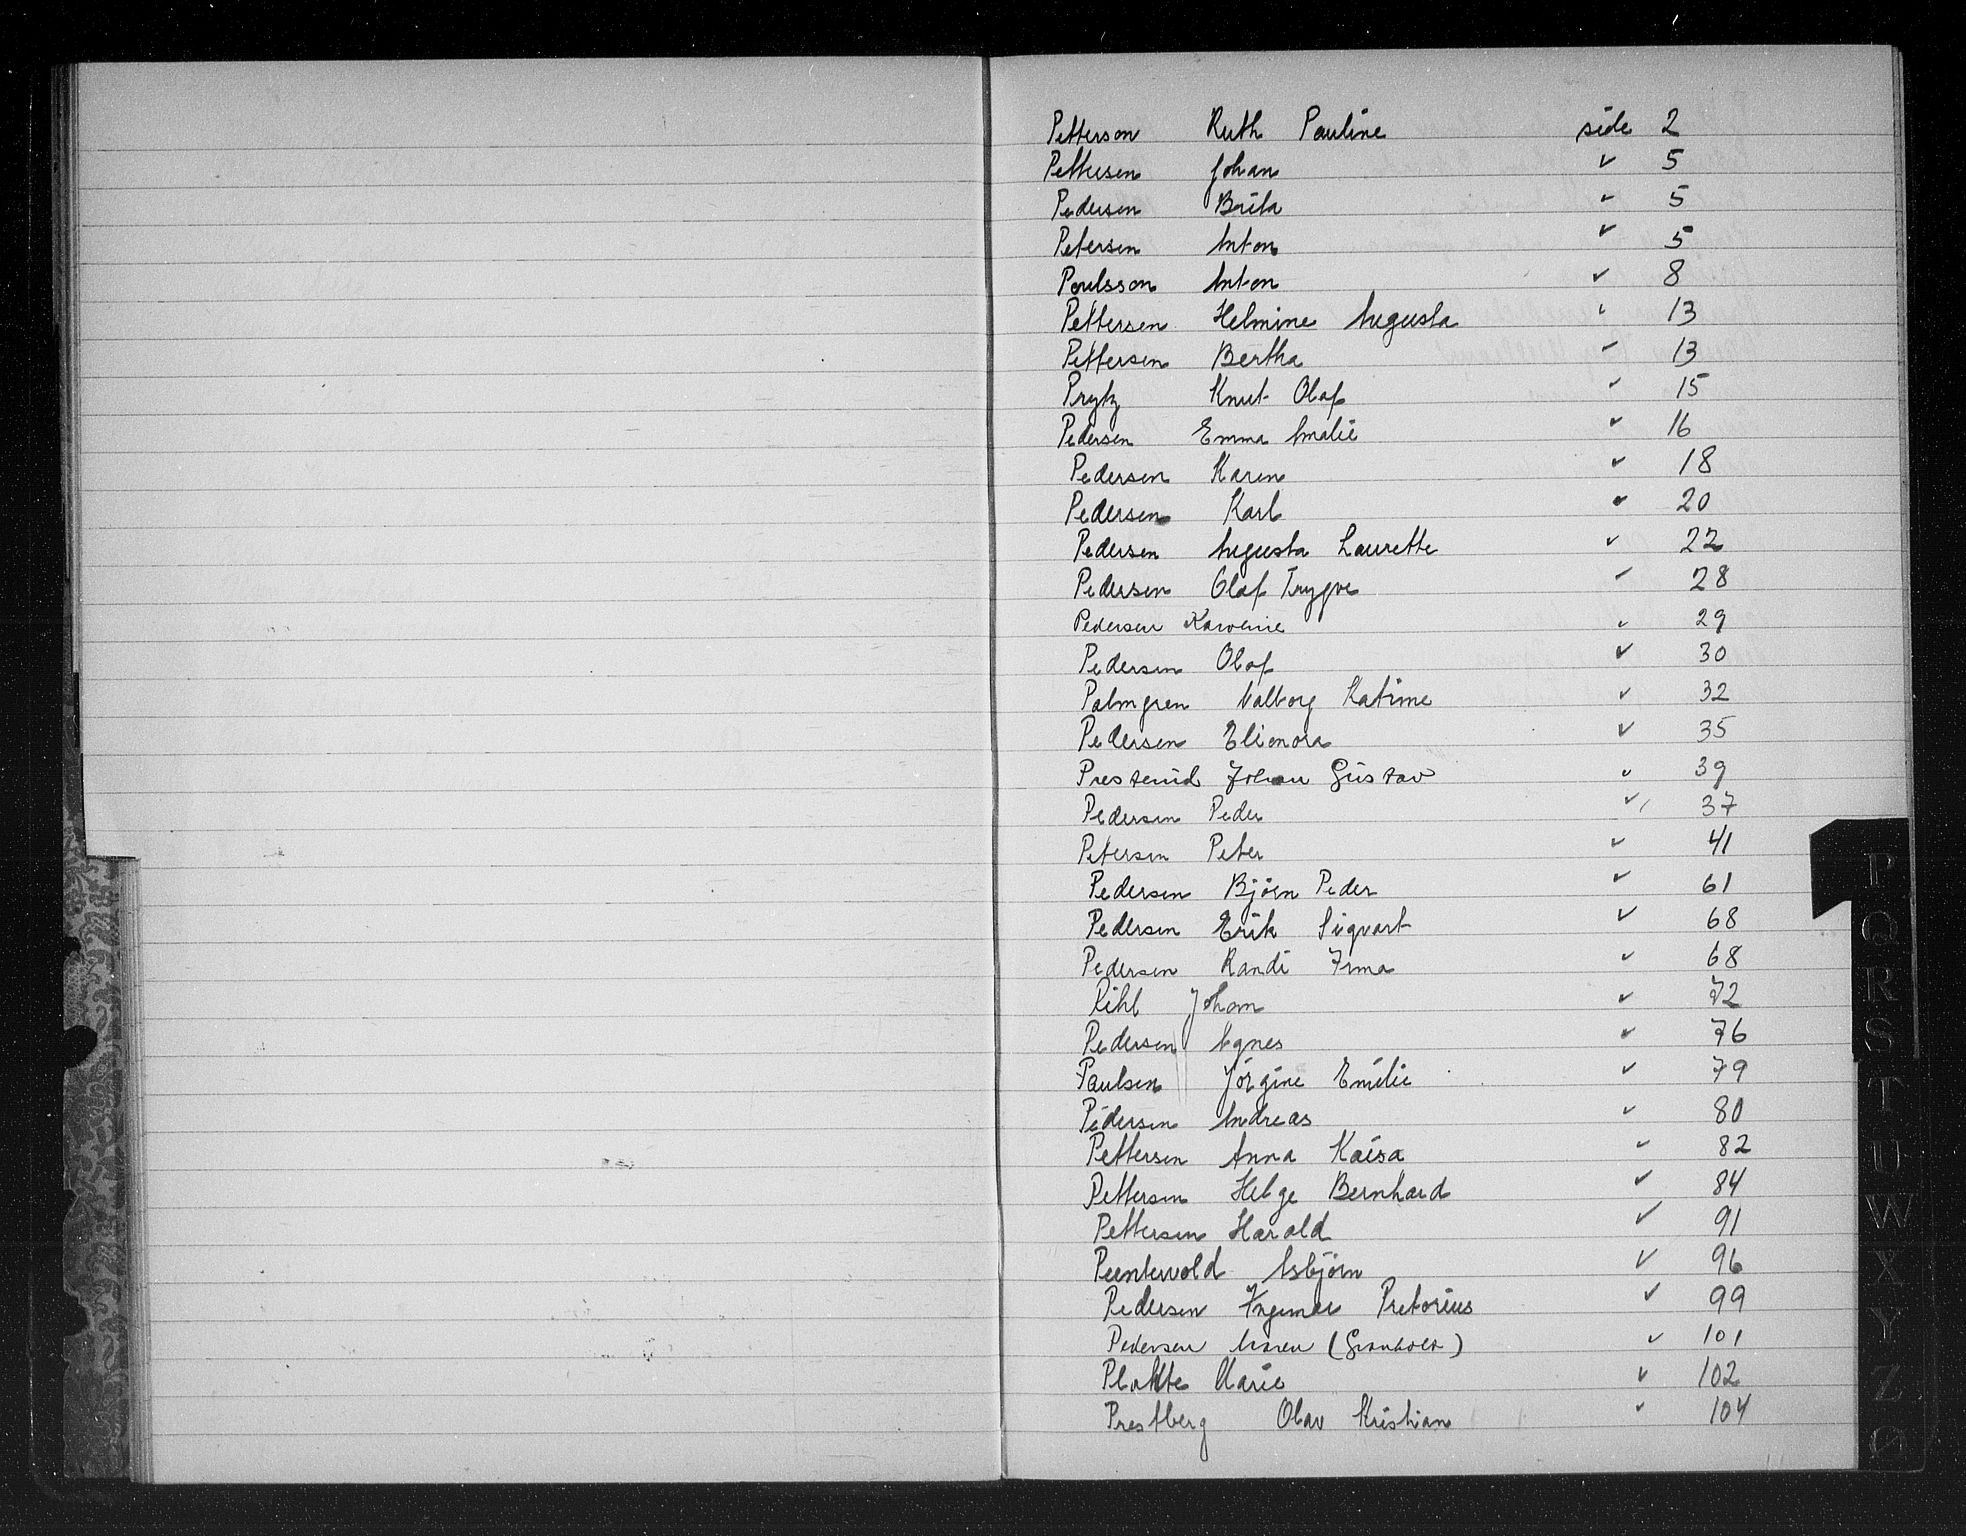 Petterson Ruth Pauline side 2
Pettersen Johan " 5
Pedersen Brita " 5
Petersen Anton " 5
Poulsson Anton " 8
Pettersen Helmine Augusta " 13
Pettersen Bertha " 13
Prytz Knut Olaf " 15
Pedersen Emma Amalie " 16
Pedersen Karen " 18
Pedersen Karl " 20
Pedersen Augusta Laurette " 22
Pedersen Olaf Trygve " 28
Pedersen Karoline " 29
Pedersen Olaf " 30
Palmgren Valborg Katrine " 32
Pedersen Elionora " 35
Presterud Johan Gustav " 39
Pedersen Peder " 37
Petersen Peter " 41
Pedersen Bjørn Peder " 61
Pedersen Erik Sigvart " 68
Pedersen Randi Irma " 68
Pihl Johan " 72
Pedersen Agnes " 76
Paulsen Jørgine Emilie " 79
Pedersen Andreas " 80
Pettersen Anna Kaisa " 82
Pettersen Helge Bernhard " 84
Pettersen Harald " 91
Asbjørn " 96
Pedersen Ingemar Pretorius " 99
Pedersen Maren " 101
Marie " 102
Prestberg Olav Kristian " 104
P
Q
R
S
T
U
W
X
Y
Z
Ø